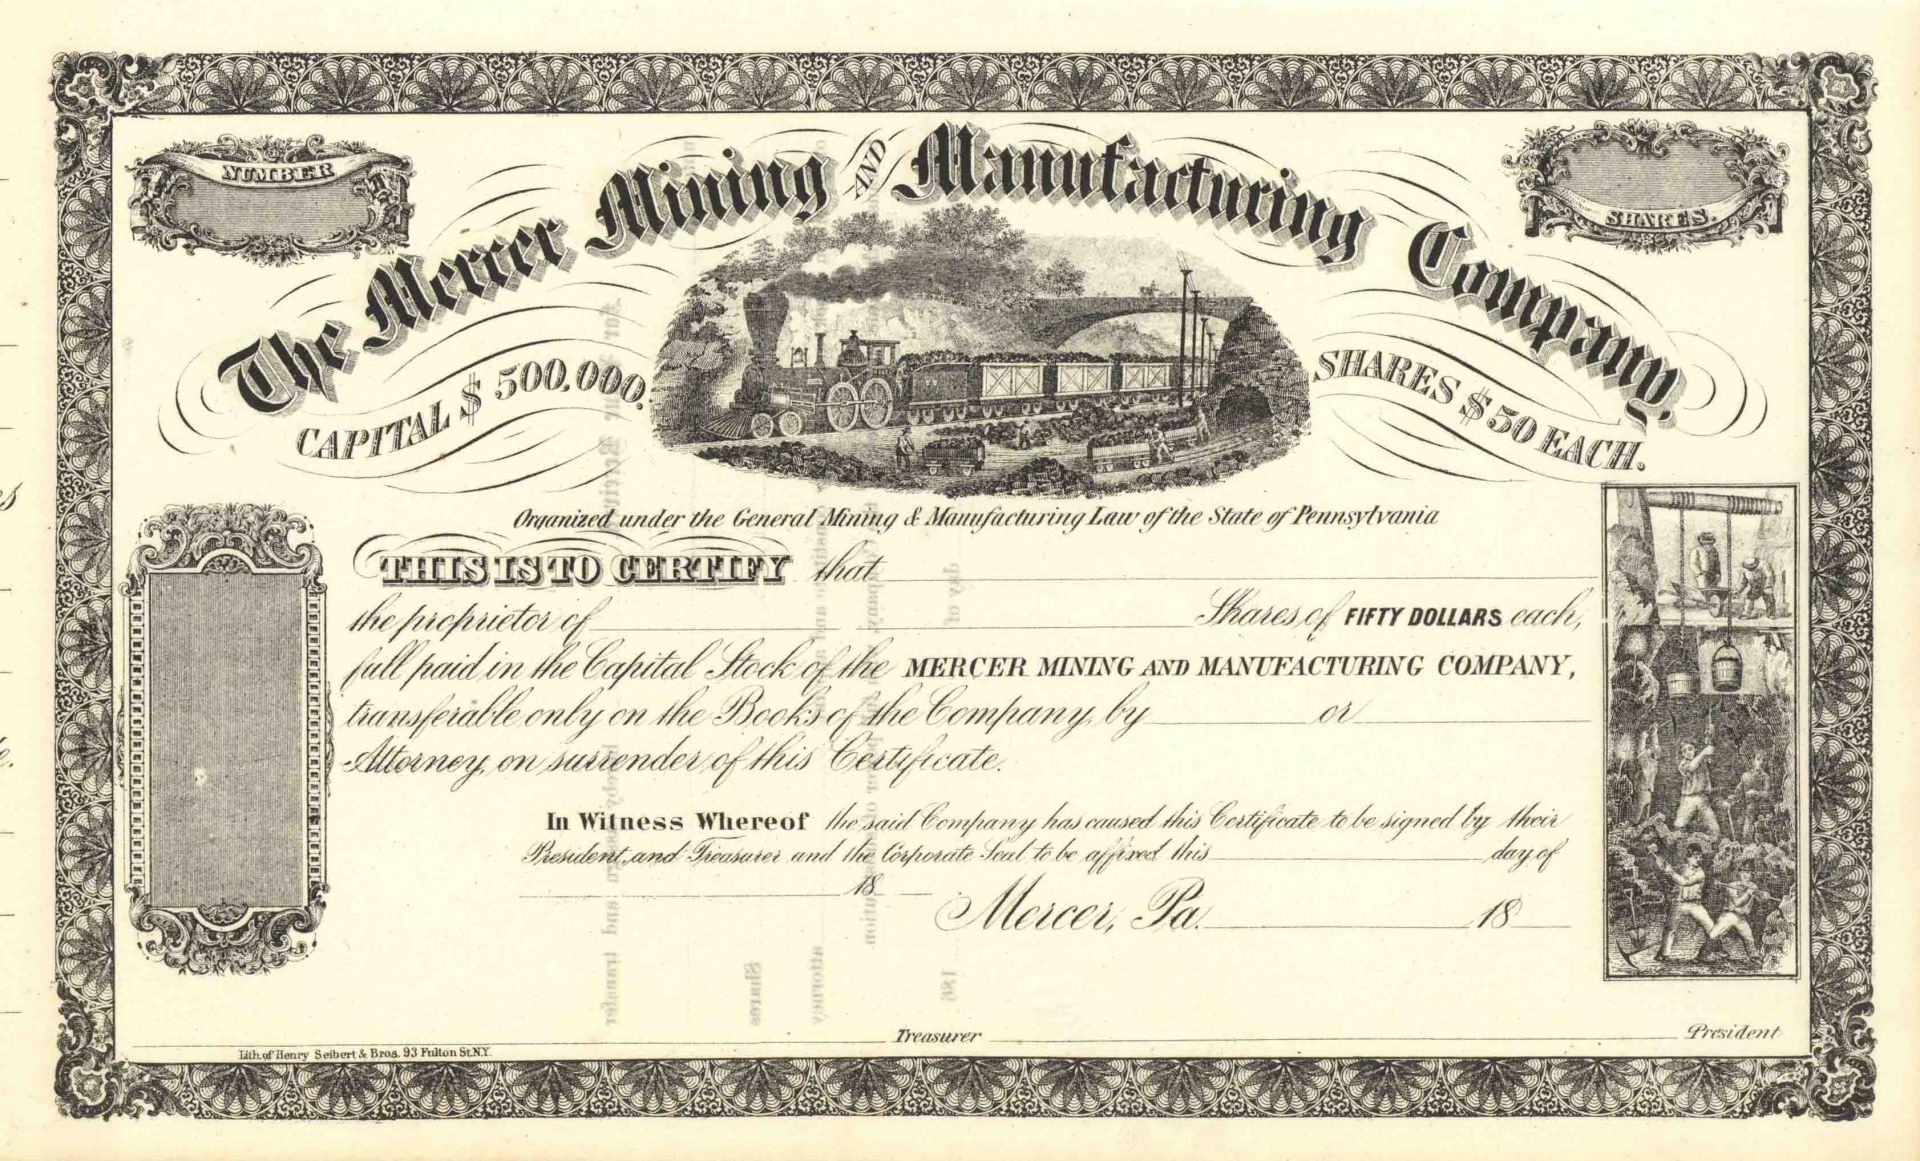 NUMBER
SHARES.
The Mercer Mining AND Manufacturing Company,
CAPITAL $500,000.
SHARES $50 EACH.
Organized under the General Mining & Manufacturing Law of the State of Pennsylvania
THIS IS TO CERTIFY that
the proprietor of Shares of FIFTY DOLLARS each,
full paid in the Capital Stock of the MERCER MINING AND MANUFACTURING COMPANY,
transferable only on the Books of the Company, by or
Attorney, on surrender of this Certificate.
In Witness Whereof the said Company has caused this Certificate to be signed by their
President, and Treasurer and the Corporate Seal to be affixed this day of
18
Mercer, Pa. 18
Treasurer
President
Lith. of Henry Seibert & Bros. 93 Fulton St. N.Y.